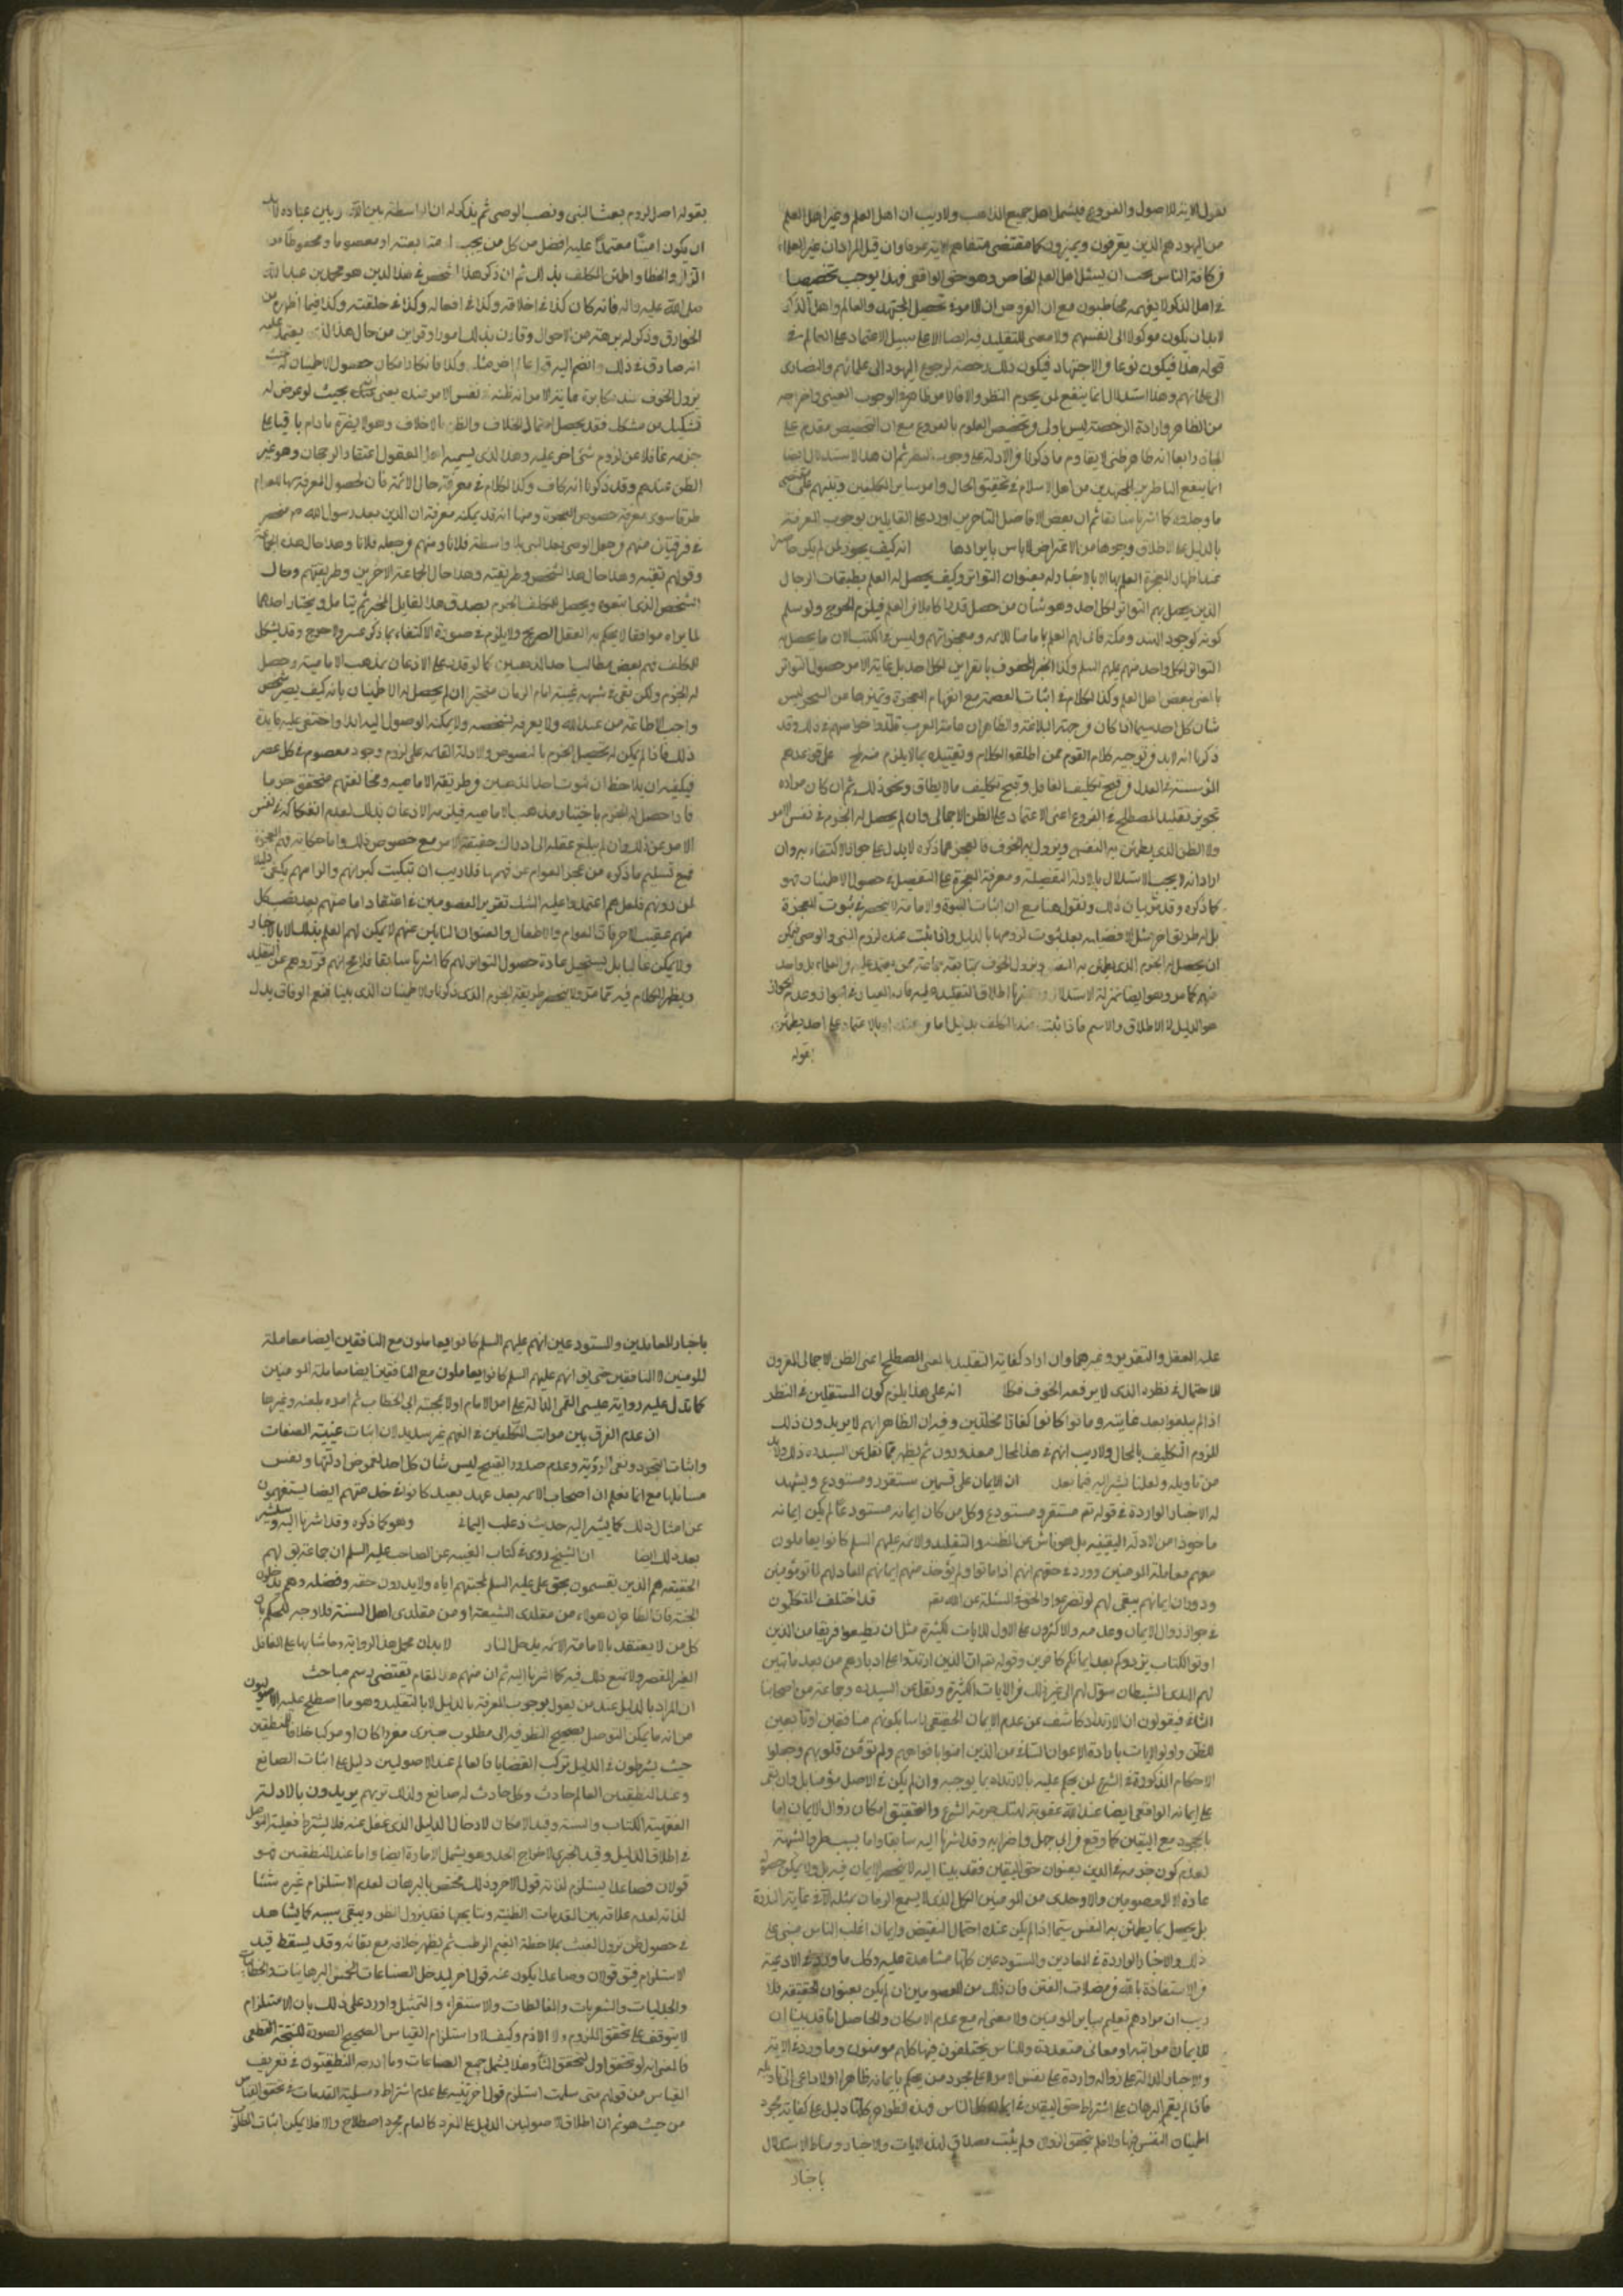 نقول الاية للاصول والفروع فيشمل اهل جميع المذاهب ولا ريب ان اهل العلم وغير اهل العلم
من اليهود هم الذين يعرفون ويميزون كما مقتضى متفاهم الاية عرفا وان قيل المراد ان غير العلماء
من كافة الناس يجب ان يسئل اهل العلم الخاص وهو حق الواقعى فهذا يوجب تخصيصا
فى اهل الذكر لا يفهمه مخاطبون مع ان المفروض ان الامر فى تحصيل المجتهد والعالم واهل الذكر
لابد ان يكون موكولا الى انفسهم ولا معنى للتقليد فيه ايضا الا على سبيل الاعتماد على العالم فى
قوله هذا فيكون نوعا من الاجتهاد فيكون ذلك رخصة لرجوع اليهود الى علمائهم والنصارى
الى علمائهم وهذا استدلال انما ينفع لمن يحرم النظر والا فالامر ظاهره الوجوب العينى واخراجه
من الظاهر وارادة الرخصة ليس باولى من تخصيص العموم بالفروع مع ان التخصيص مقدم على
المجاز ورابعا انه ظاهر ظنى لا يقاوم ما ذكرنا من الادلة على وجوب النظر ثم ان هذا الاستدلال ايضا
انما ينفع الناظرين المجتهدين من اهل الاسلام فى تحقيق الحال واما سائر المكلفين وبينهم على مقتضى
ما وجدوه كما اشرنا سابقا ثم ان بعض الافاضل المتاخرين اورد على القايلين بوجوب المعرفة
بالدليل على الاطلاق وجوها من الاعتراض لا باس بايرادها انه كيف يجوز لمن لم يكن حاضرا
عند اظهار المعجزة العلم بها الا بالاخبار له بعنوان التواتر وكيف يحصل له العلم بطبقات الرجال
الذين يحصل بهم التواتر لكل احد وهو شان من حصل قدرا كاملا من العلم فيلزم الحرج ولو سلم
كونه كوجود الهند ومكة فانى لهم العلم بامامة الائمه ومعجزاتهم وليس فى الكتب الان ما يحصل به
التواتر لكل واحد منهم عليهم السلم وكذا الخبر المحفوف بالقراين لكل احد بل غاية الامر حصول التواتر
بالمعنى لبعض اهل العلم وكذا الكلام فى اثبات العصمة مع انفهام المعجزة وتميزها عن السحر ليس
شان كل احد سيما اذا كان من جهة البلاغة والظاهر ان عامة العرب قلدوا خواصهم فى ذلك وقد
ذكرنا انه لابد من توجيه كلام القوم ممن اطلقوا الكلام وتقييده بما لا يلزم منه قبح على قواعدهم
المؤسسة فى العدل من قبح تكليف الغافل وقبح تكليف ما لا يطاق ونحو ذلك ثم ان كان مراده
تجويز تقليد المصطلح فى الفروع اعنى الاعتماد على الظن الاجمالى وان لم يحصل له الجزم فى نفس الامر
ولا الظن الذى يطمئن به النفس ويزول به الخوف فالعجز عما ذكره لا يدل على جواز الاكتفاء به وان
اراد انه لا يجب الاستدلال بالادلة التفصيلة ومعرفة المعجزة على التفصيل فى حصول الاطمينان فهو
كما ذكره وقد مر بيان ذلك ونقول هنا مع ان اثبات النبوة والامامة لا ينحصر فى ثبوت المعجزة
بل له طريق اخر مثل الافضليه بعد ثبوت لزومها بالدليل واذا ثبت عنده لزوم النبى والوصى يمكن
ان يحصل له الجزم الذى يطمئن به النفس ويزول الخوف بمتابعة جماعة ممن يعتمد عليه والعلماء بل واحد
منهم كما مر وهو ايضا بمنزلة الاستدلال اطلاق التقليد عليه فان العيان فى الجواز وعدم الجواز
هو الدليل لا الاطلاق والاسم فاذا ثبت عند المكلف بدليل اما من بالاعتماد على احد يطمئن
بقوله
بقوله اصل لزوم بعث النبى ونصب الوصى ثم يذكر له ان الواسطة بين الله وبين عباده لابد
ان يكون امينا معتمدا عليه افضل من كل من يجب متابعته او معصوما ومحفوظا من
الزلل والخطا واطمئن المكلف بذلك ثم ان ذكر هذا الشخص فى هذا الدين هو محمد بن عبد الله
صلى الله عليه واله فانه كان كذا فى اخلاقه وكذا فى افعاله وكذا فى خلقته وكذا فيما اظهره من
الخوارق وذكر له برهة من الاحوال وقارن بذلك امورا وقراين من حال هذا الذى يعتمد عليه
انه صادق فى ذلك وانضم اليه قراين مثله وكذا فامكان حصول الاطمينان له بحيث
يزول الخوف عنه مكابرة غاية الامر انه ظنه نفس الامر ضده يعنى بحيث لو عرض له
تشكيك من مشكك فقد يحصل احتمال الخلاف والظن بالاخلاف وهو لا يضره ما دام باقيا على
جزمه غافلا عن لزوم شئ اخر عليه وهذا الذى يسميه اهل المعقول اعتقاد الرجحان وهو غير
الظن عندهم وقد ذكرنا انه كاف وكذا الكلام فى معرفة حال الائمة فان لحصول المعرفة بها للعوام
طرقا سوى معرفة خصوص المعجزة ومنها انه قد يمكنه معرفة ان الدين بعد رسول الله ص منحصر
فى فرقتين منهم من جعل الوصى بعد النبى بلا واسطة فلانا ومنهم من جعله فلانا وهذا حال هذه الجماعة
وقولهم تقية وهذا حال هذا الشخص وطريقته وهذا حال الجماعة الاخرين وطريقتهم وحال
الشخص الذى اتبعوه ويحصل للمكلف الجزم بصدق هذا القايل المخبر ثم يتامل ويختار احدهما
لما يراه موافقا لا يحكم به العقل الصريح ولا يلزم فى صورة الاكتفاء بما ذكر عسر ولا حرج وقد يشكل
للمكلف فهم بعض مطالب احد المذهبين كما لو قدر على الاذعان بمذهب الامامية وحصل
له الجزم ولكن بقى فى شبهة غيبة امام الزمان متحيرا ان لم يحصل له الاطمينان بانه كيف يصير شخص
واجب الاطاعة من عند الله ولا يعرفه بشخصه ولا يمكنه الوصول اليه ابدا واختفى عليه فايدة
ذلك فاذا لم يمكن له تحصيل الجزم بالنصوص والادلة القائمة على لزوم وجود معصوم فى كل عصر
فيكفيه ان يلاحظ ان ثبوت احد المذهبين وطريقة الاماميه ومخالفتهم متحقق جزما
فاذا حصل له الجزم باختيار مذهب الاماميه فيلزمه الاذعان بذلك لعدم انفكاكه فى نفس
الامر عن ذلك وان لم يبلغ عقله الى ادراك حقيقة الامر مع خصوص ذلك واما حكاية فهم المعجزة
فمع تسليم ما ذكره من عجز العوام عن فهمها فلا ريب ان تبكيت كبرائهم والزامهم يكفى دليلا
لمن دونهم فلعلهم اعتمدوا عليه الشك تقرير المعصومين فى اعتقاد امامتهم بعد نصب كل
منهم عقيب الاخر فان العوام والاطفال والعنوان النائين عنهم لا يمكن لهم العلم بذلك الا بالاخبار
ولا يمكن غالبا بل يستحيل عادة حصول التواتر لهم كما اشرنا سابقا فلا مح انهم قرروهم على التقليد
ويظهر الكلام فيه مما مر ولا ينحصر طريقة الجزم الذى ذكرنا والاطمينان الذى بينا فنعم الوفاق يدل
عليه العقل والتقرير وغيرهما وان اراد كفاية التقليد بالمعنى المصطلح اعنى الظن الاجمالى المقرون
للاحتمال فى نظره الذى لا يرفعه الخوف فكلا انه على هذا يلزم كون المستقلين فى النظر
اذا لم يبلغوا بعد غايته وماتوا كانوا كفارا مخلدين وفيه ان الظاهر انهم لا يريدون ذلك
للزوم التكليف بالمحال ولا ريب انهم فى هذا الحال معذورون ثم يظهر مما نقل عن السيد ره ذلك ولابد
من تاويله ولعلنا نشير اليه فيما بعد ان الايمان على قسمين مستقر ومستودع ويشهد
له الاخبار الواردة فى قوله تعم مستقر ومستودع وكل من كان ايمانه مستودعا لم يكن ايمانه
ماخوذا من الادلة اليقينيه بل هو ناش عن الظن والتقليد والائمه عليهم السلم كانوا يعاملون
معهم معاملة المومنين وورد فى حقهم انهم اذا ماتوا ولم يؤخذ منهم ايمانهم المعاد لهم لماتوا مؤمنين
ودوران ايمانهم يبقى لهم لو تضرعوا والحوا فى المسئلة عن الله تعم قد اختلف المتكلمون
فى جواز زوال الايمان وعدمه والاكثرون على الاول للايات الكثيرة مثل ان تطيعوا فريقا من الذين
اوتوا الكتاب يردوكم بعد ايمانكم كافرين وقوله تعم ان الذين ارتدوا على ادبارهم من بعد ما تبين
لهم الهدى الشيطان سول لهم الى غير ذلك من الايات الكثيرة ونقل عن السيد ره وجماعة من اصحابنا
الثانى فيقولون ان الارتداد كاشف عن عدم الايمان الحقيقى اما بكونهم منافقين او تابعين
للظن واولوا الايات بارادة الاعوان الثانى من الذين امنوا بافواههم ولم تؤمن قلوبهم وجعلوا
الاحكام المذكورة فى الشرع لمن يحكم عليه بالارتداد بما يوجبه وان لم يكن فى الاصل مؤمنا بل وان بقى
على ايمانه الواقعى ايضا عند الله عقوبة لهتك حرمة الشرع والتحقيق امكان زوال الايمان اما
بالجحود مع اليقين كما وقع من ابى جهل واضرابه وقد اشرنا اليه سابقا واما بسبب طرو الشبهة
لعدم كون جزمه فى الدين بعنوان حق اليقين فقد بينا اليه لا ينحصر الايمان فيه بل ولا يمكن حصوله
عادة الا للمعصومين والاوحدى من المومنين الكمل الذى لا يسمع الزمان بمثله الا فى غاية الندرة
بل يحصل بما يطمئن به النفس سيما اذا لم يكن عنده احتمال النقيض وايمان اغلب الناس مبنى على
ذلك والاخبار الواردة فى المعادين والمستودعين كلها مشاهدة عليه وكك ما ورد فى الادعية
من الاستعاذة بالله من مضلات الفتن فان ذلك من المعصومين ان لم يكن بعنوان الحقيقة فلا
ريب ان مرادهم تعليم ساير المومنين ولا معنى له مع عدم الامكان والحاصل انا قد بينا ان
للايمان مراتب او معانى متعددة والناس يختلفون فيها كلهم مومنون وما ورد فى الاية
والاخبار الدالة على زواله واردة على نفس الامر لا على مجرد من يحكم بايمانه ظاهرا ولا داعى الى تاويله
فاذا لم يقم البرهان على اشتراط حق اليقين فى ايمان الناس وهذه الظواهر كلها دليل على كفاية مجرد
اطمينان النفس فيها والا فلم يتحقق الزوال ولم يثبت مصداق لهذه الايات والاخبار ومناط الاستدلال
باخبار
باخبار المعاملين والمستودعين انهم عليهم السلم كانوا يعاملون مع المنافقين ايضا معاملة
المومنين لا المنافقين حتى يق انهم عليهم السلم كانوا يعاملون مع المنافقين ايضا معاملة المومنين
كما يدل عليه رواية عيسى القمى الدالة على امر الامام اولا بمحبة ابى الخطاب ثم امره بلعنه وغيرها
ان عدم الفرق بين مراتب المكلفين فى الفهم غير سديد لان اثبات عينية الصفات
واثبات التجرد ونفى الرؤية وعدم صدور القبيح ليس شان كل احد لغموض ادلتها ونفس
مسائلها مع انا نعلم ان اصحاب الائمه بعد عهد بعيد كانوا فى خدمتهم ايضا يستفهمون
عن امثال ذلك كما يشير اليه حديث ذعلب اليمانى وهو كما ذكره وقد اشرنا اليه وسنشير
بعد ذلك ايضا ان الشيخ روى فى كتاب الغيبه عن الصاحب عليه السلم ان جماعة يق لهم
الحقيقه هم الذين يقسمون بحق على عليه السلم لمحبتهم اياه ولا يدرون حقه وفضله وهم يدخلون
الجنة فان الظاهر ان هولاء من مقلدى الشيعة او من مقلدى اهل السنة فلا وجه للحكم بان
كل من لا يعتقد بالامامة الائمه يدخل النار لابد ان يحمل هذا الرواية وما شابهها على الغافل
الغير المقصر ولا نمنع ذلك فيه كما اشرنا اليه ثم ان منهم هذا المقام يقتضى رسم مباحث
ان المراد بالدليل عند من يقول بوجوب المعرفة بالدليل لا بالتقليد وهو ما اصطلح عليه الاصوليون
من انه ما يمكن التوصل بصحيح النظر فيه الى مطلوب خبرى مفردا كان او مركبا خلافا للمنطقين
حيث يشرطون فى الدليل تركب القضايا فالعالم عند الاصوليين دليل على اثبات الصانع
وعند المنطقيين العالم حادث وكل حادث له صانع ولذلك تريهم يريدون بالادلة
الفقهية الكتاب والسنة وقيد الامكان لادخال الدليل الذى غفل عنه فلا يشترط فعلية التوصل
فى اطلاق الدليل وقيد الخبرى لاخراج الحد وهو يشمل الامارة ايضا واما عند المنطقيين فهو
قولان فصاعدا يستلزم لذاته قول الاخر وذلك مختص بالبرهان لعدم الاستلزام غيره شيئا
لذاته لعدم علاقة بين المقدمات الظنية ونتايجها فقد يزول الظن ويبقى سببه كما يشاهد
فى حصول ظن نزول الغيث بملاحظة الغيم الرطب ثم يظهر خلافه مع بقائه وقد يسقط قيد
الاستلزام فيق قولان وصاعدا يكون عنه قول اخر ليدخل الصناعات الخمس البرهانيات والخطابيات
والجدليات والشعريات والمغالطات والاستقراء والتمثيل واورد على ذلك بان الاستلزام
لا يتوقف على تحقق الملزوم ولا اللازم وكيف لا واستلزام القياس الصحيح الصورة للنتيجة القطعى
فالمعنى انه لو تحقق اول لتحقق الثانى وهذا يشمل جميع الصناعات وما ادرجه المنطقيون فى تعريف
القياس من قولهم متى سلمت استلزم قول اخر تنبيه على عدم اشتراط مسلمية المقدمات فى تحقق القياس
من حيث هو ثم ان اطلاق الاصوليين الدليل على المفرد كالعالم مجرد اصطلاح والا فلا يمكن اثبات المطلوب